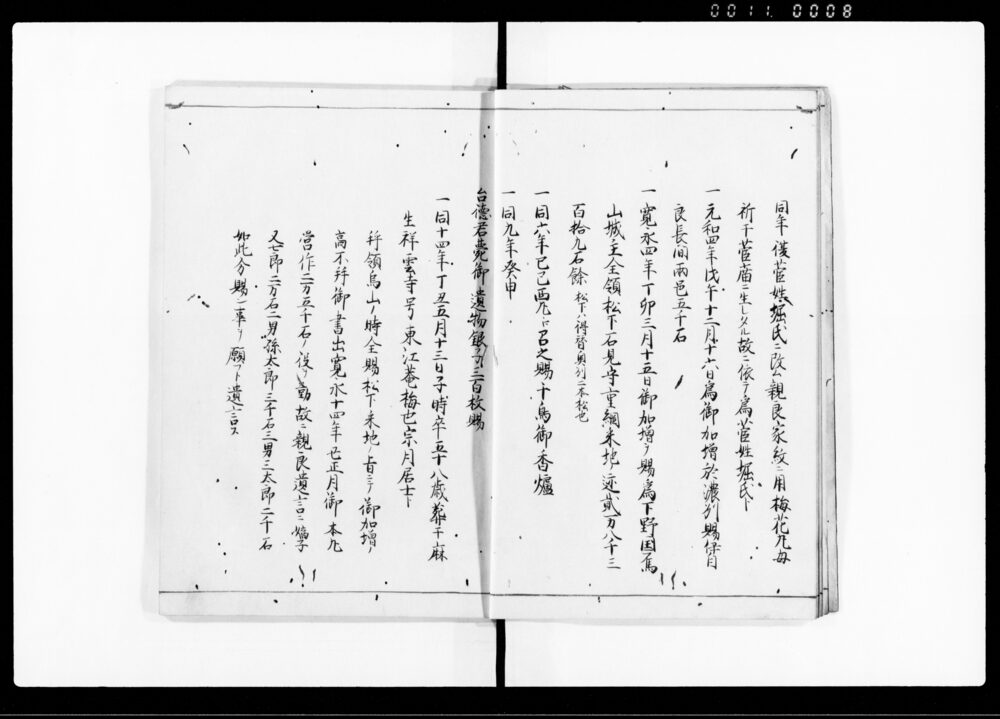 0011 0008
同年復菅姓堀氏ニ改ム親良家紋ニ用梅花凡毎
祈于菅庿ニ生レタル故ニ依テ為菅姓堀氏ト
一元和四年戊午十二月十六日為御加増於濃列賜保目
良長間両邑五千石
一寛永四年丁卯三月十五日御加増ヲ賜為下野国烏
山城主全領松下石見守重綱釆地迹貮万八千三
百拾九石餘 松下ハ得替奥列二本松也
一同六年己巳西凡ニ召之賜千鳥御香爐
一同九年癸申
台徳君薨御遺物銀子三百枚賜
一同十四年丁丑五月十三日子時卒五十八歳葬于麻
生祥雲寺号東江菴梅也宗月居士ト
拝領烏山ノ時全賜松下釆地ノ旨ニテ御加増ノ
高不拝御書出寛永十四年已正月御本凡
営作二万五千石ノ役ヲ勤故ニ親良遺言ニ嫡子
又七郎二万石二男孫太郎三千石三男三太郎二千石
如此分賜ン事ヲ願フト遺言ス